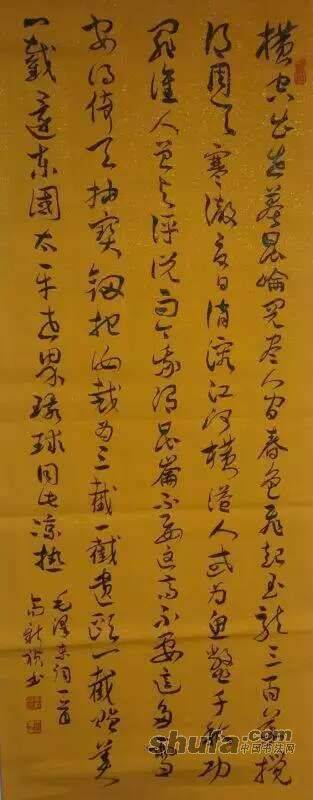 横空出世莽昆崙阅尽人间春色飞起玉龙三百万搅
得周天寒澈夏日消溶江河横溢人或为鱼鳖千秋功
罪谁人曾与评说而今我谓昆崙不要这高不要这多雪
安得倚天抽寶劍把汝裁为三截一截遗欧一截赠美
一截還东國太平世界环球同此凉热
毛泽东词一首
书
shufa.com
中国书法网